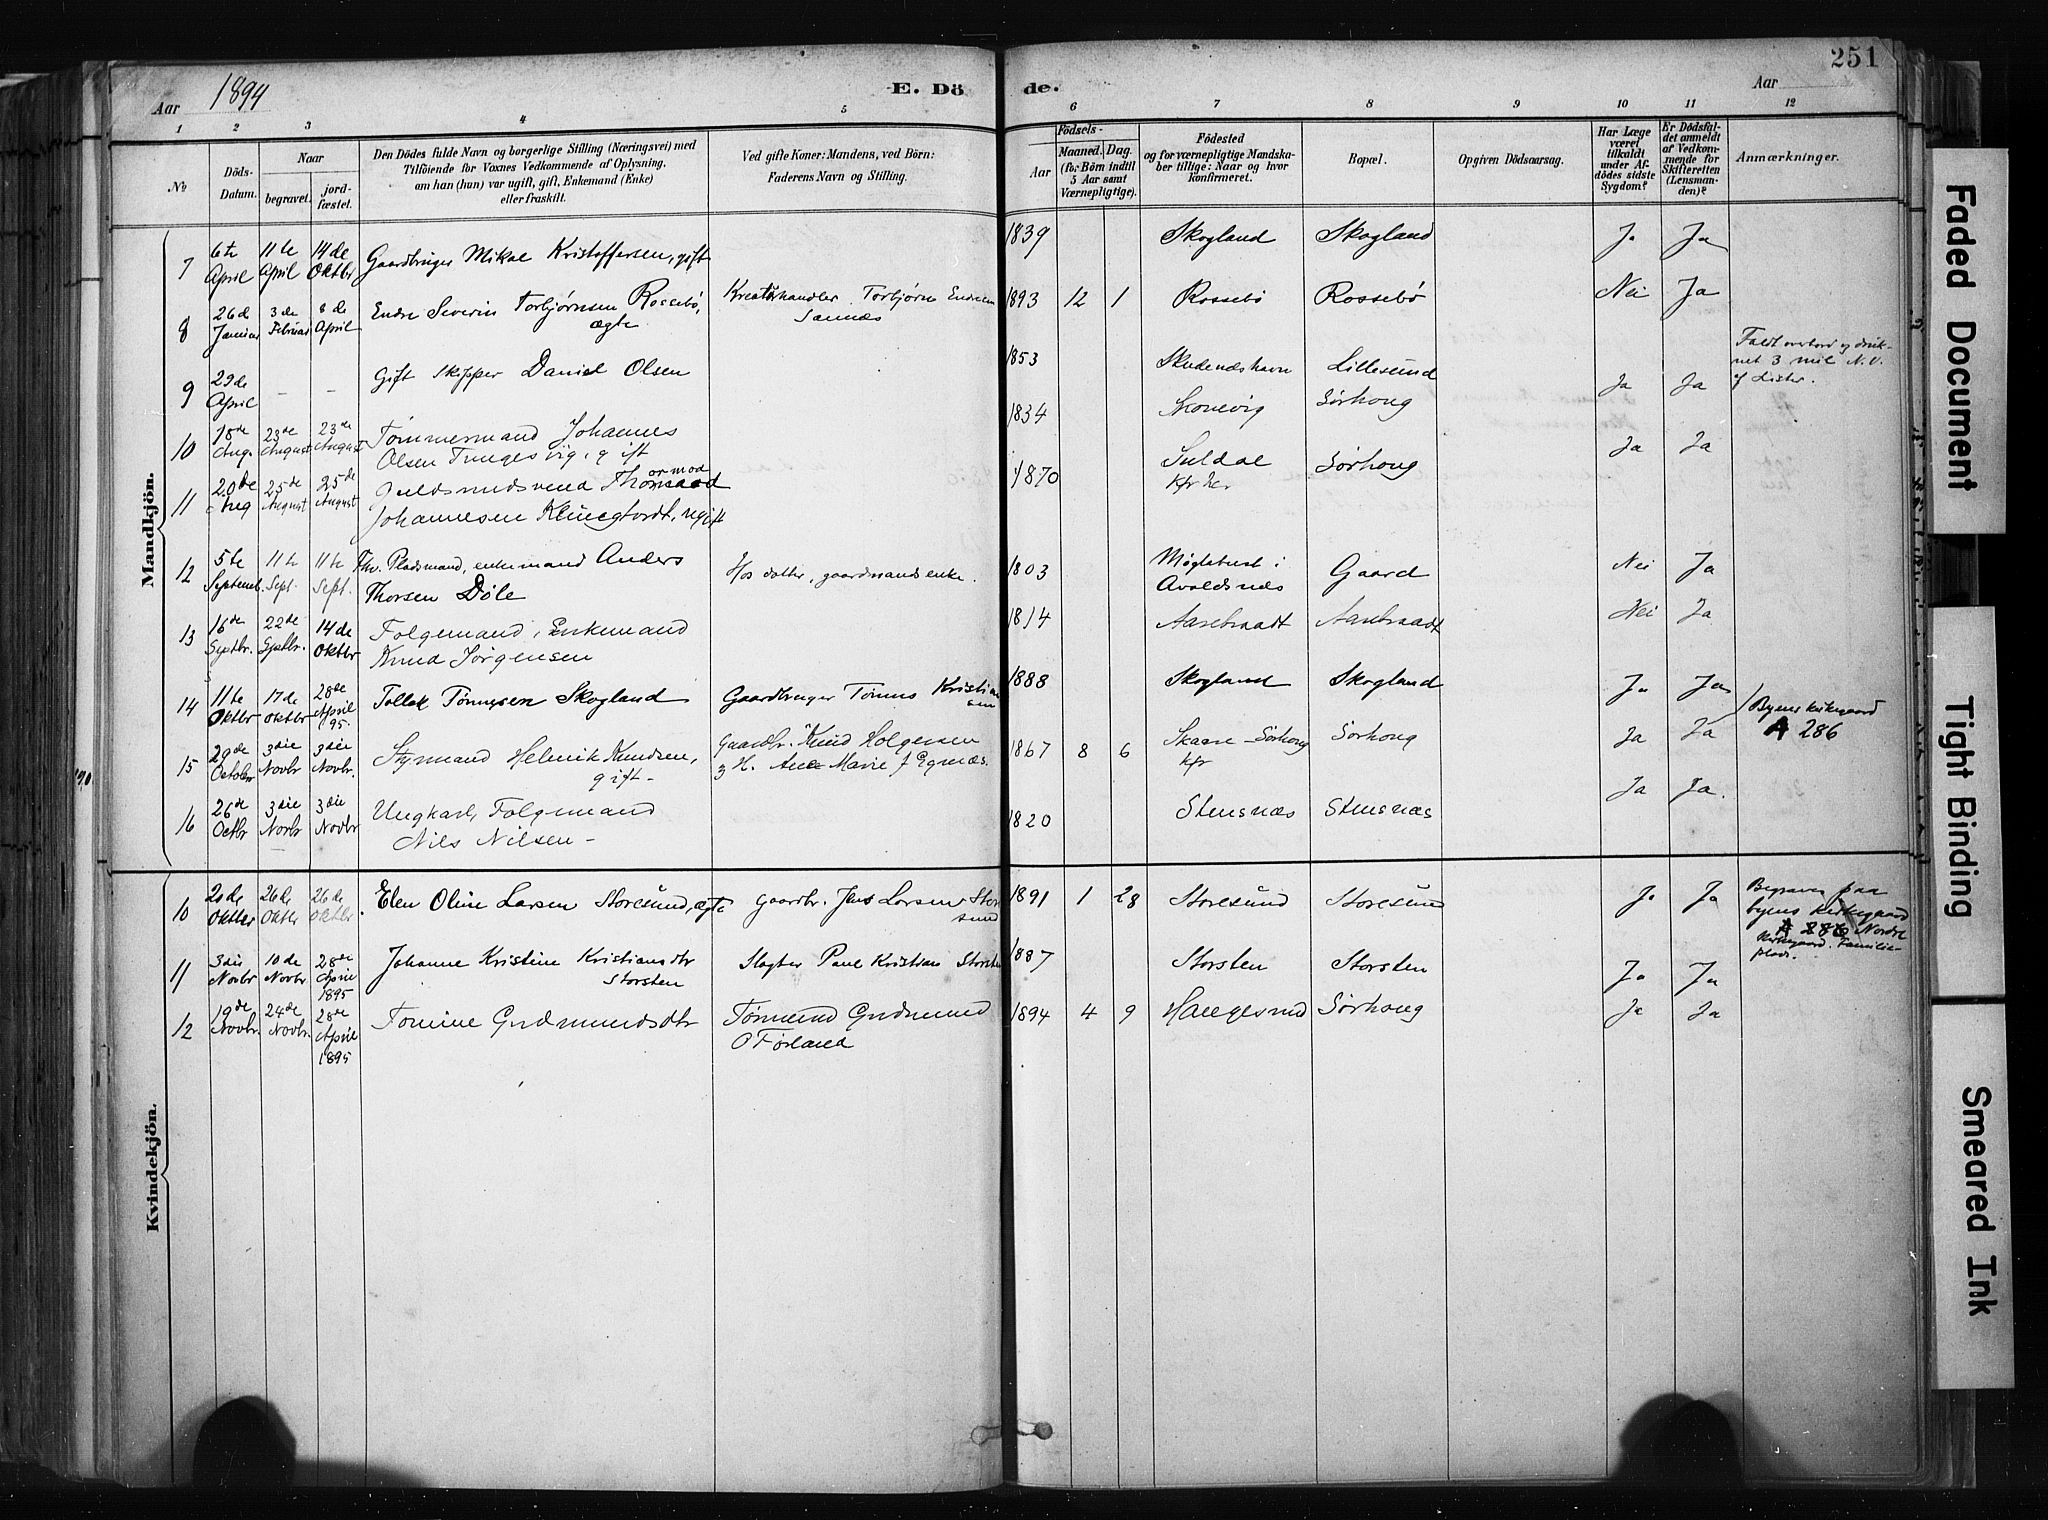 Aar 1894
E. Dö
de.
Aar
251
1 2 3 4 5 6 7 8 9 10 11 12
№
Döds-
Datum.
Naar
begravet.
jord-
fæstet.
Den Dödes fulde Navn og borgerlige Stilling (Næringsvei) med
Tilföiende for Voxnes Vedkommende af Oplysning,
om han (hun) var ugift, gift, Enkemand (Enke)
eller fraskilt.
Ved gifte Koner: Mandens, ved Börn:
Faderens Navn og Stilling.
Födsels-
Aar
Maaned. Dag.
(for Börn indtil
5 Aar samt
Værnepligtige).
Födested
og for værnepligtige Mandska-
ber tillige: Naar og hvor
konfirmeret.
Bopæl.
Opgiven Dödsaarsag.
Har Læge
været
tilkaldt
under Af-
dödes sidste
Sygdom?
Er Dödsfal-
det anmeldt
af Vedkom-
mende for
Skifteretten
(Lensman-
den)?
Anmærkninger.
Mandkjön.
7 6te April 11te April 14de Oktbr Gaardbruger Mikal Kristoffersen, gift 1839 Skogland Skogland Ja Ja
8 26de Januar 3de Februar 8de April Endre Severin Torbjørnsen Rossebø, ægte Kreaturhandler Torbjørn Endresen Sannæs 1893 12 1 Rossebø Rossebø Nei Ja
9 29de April – – Gift Skipper Daniel Olsen 1853 Skudenæshavn Lillesund Ja Ja Faldt overbord og druk-
net 3 mil N.V.
af Lister.
10 18de Aug. 23de August 23de August Tømmermand Johannes
Olsen Tungesvig, gift 1834 Skonevig Sørhoug Ja Ja
11 20de Aug 25de August 25de August Guldsmedsvend Thormod
Johannesen Klungtvedt, ugift 1870 Suldal
Kfr her Sørhoug
12 5te Septemb. 11te Sept. 11te Sept. Fhv. Pladsmand, enkemand Anders
Thorsen Døle Hos datter, gaardmandsenke. 1803 Møglebust i
Avaldsnæs Gaard Nei Ja
13 16de Septbr. 22de Septbr. 14de Oktbr Folgemand, Enkemand
Knud Jørgensen 1814 Aarebraadt Aarebraadt Nei Ja
14 11te Oktbr 17de Oktbr 28de April 95. Tollak Tønnesen Skogland Gaardbruger Tønnes Kristian
sen 1888 Skogland Skogland Ja Ja
15 29de October 3die Novbr 3die Novbr. Styrmand Helmik Knudsen,
gift – Gaardbr. Knud Holgersen
og H. Ane Marie f Egenæs. 1867 8 6 Skaare – Sørhoug
Kfr Sørhoug Ja Ja Byens kirkegaard
A 286
16 26de Octbr 3die Novbr 3die Novbr Ungkarl, Folgemand
Nils Nilsen – 1820 Stensnæs Stensnæs Ja Ja.
Kvindekjön.
10 20de Oktbr 26de Oktbr 26de Oktbr. Elen Oline Larsen Storesund, ægte Gaardbr. Jens Larsen Store
sund 1891 1 28 Storesund Storesund Ja Ja Begraven paa
byens kirkegaard
A 286 Nordre
Kirkegaard. Familie-
plads.
11 3die Novbr 10de Novbr 28de April 1895 Johanne Kristine Kristiansdtr
Storsten Slagter Paul Kristian Storsten 1887 Storsten Storsten Ja Ja
12 19de Novbr. 24de Novbr. 28de April 1895 Tomine Gudmundsdtr Tørmund Gudmund
O Førland 1894 4 9 Haugesund Sørhoug Ja Ja
Faded Document
Tight Binding
Smeared Ink